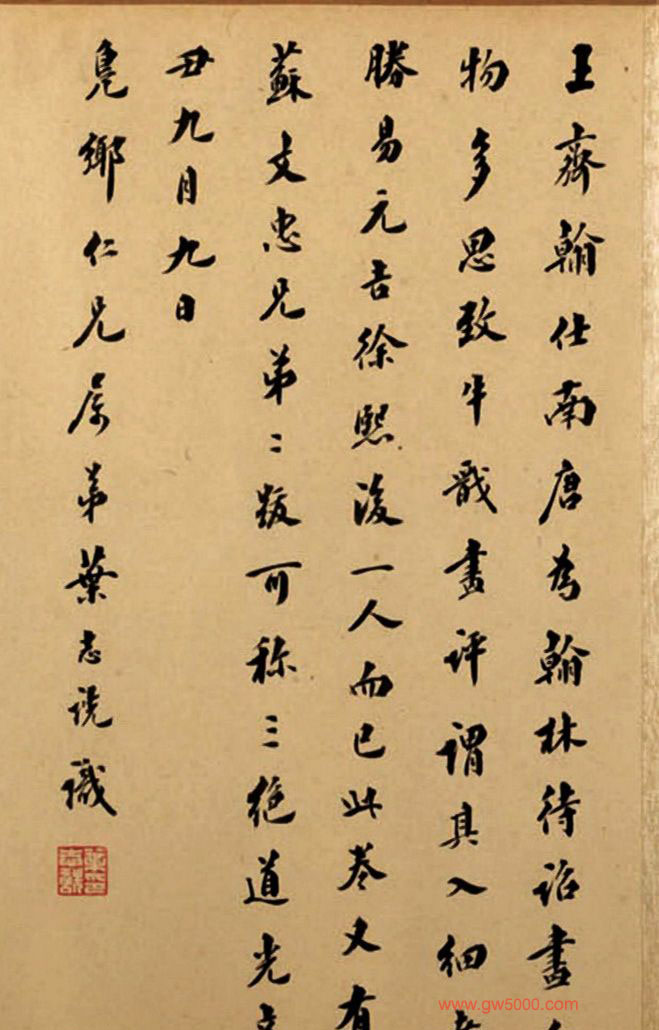 王齊翰仕南唐為翰林待詔畫
物多思致牛戩畫評謂其入細
勝易元吉徐熙後一人而已此卷又有
蘇文忠兄弟二跋可称三絶道光
丑九月九日
鳧鄉仁兄属弟葉志詵識
www.gw5000.com